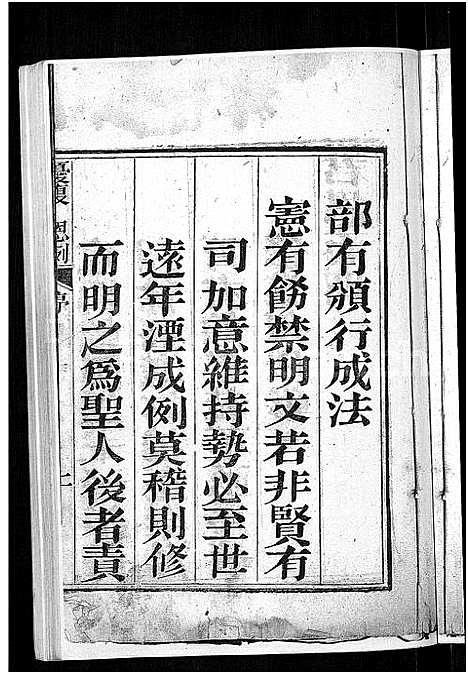 部有頒行成法
憲有飭禁明文若非賢有
司如意維持勢必至世
遠年湮成例莫稽則修
而明之為聖人後者責
優復恩例
序